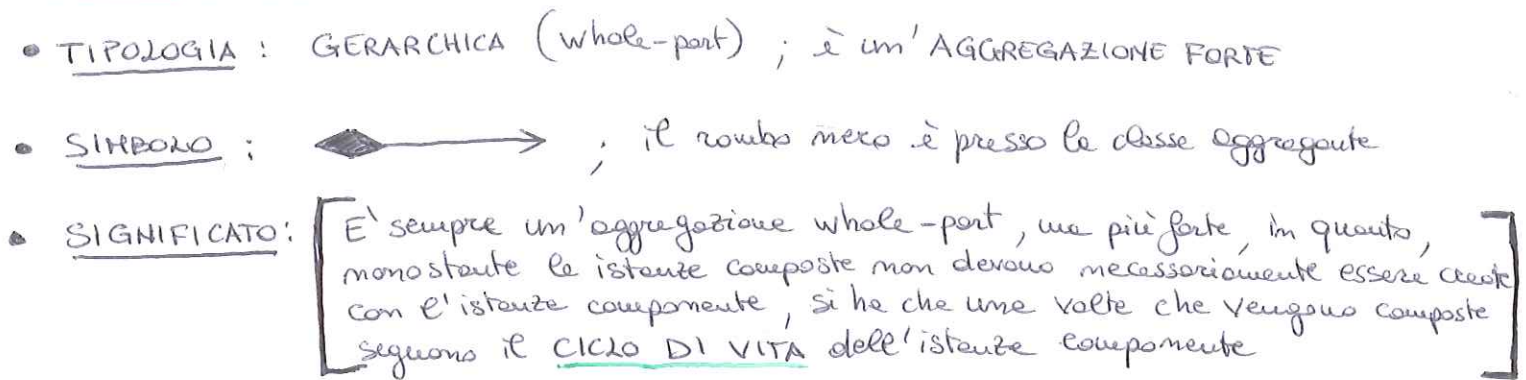 • TIPOLOGIA : GERARCHICA (whole-part) ; è un' AGGREGAZIONE FORTE
• SIMBOLO : ; il rombo nero è presso la classe aggregante
• SIGNIFICATO: [E' sempre un'aggregazione whole-part, ma più forte, in quanto,
nonostante le istanze composte non devono necessariamente essere create
con l'istanza componente, si ha che una volta che vengono composte
seguono il CICLO DI VITA dell'istanza componente]